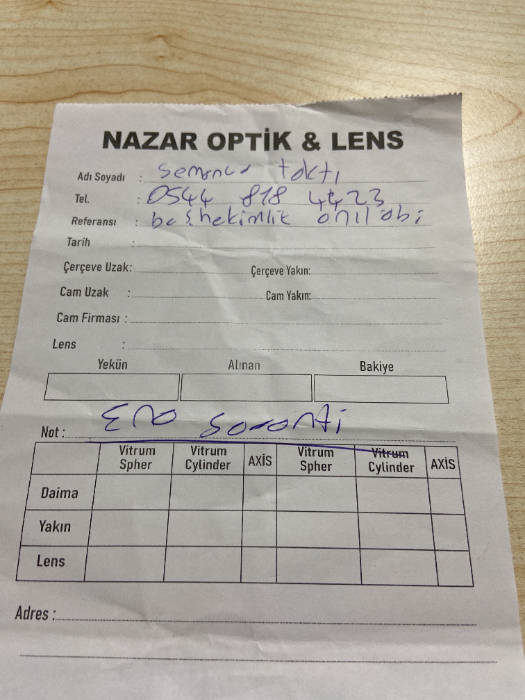 NAZAR OPTİK & LENS
Adı Soyadı :
Tel. : 0544 818 4423
Referansı : başhekimlik anıl abi
Tarih :
Çerçeve Uzak: Çerçeve Yakın:
Cam Uzak : Cam Yakın:
Cam Firması :
Lens :
Yekün Alınan Bakiye
Not :
Vitrum Spher Vitrum Cylinder AXİS Vitrum Spher Vitrum Cylinder AXİS
Daima
Yakın
Lens
Adres :